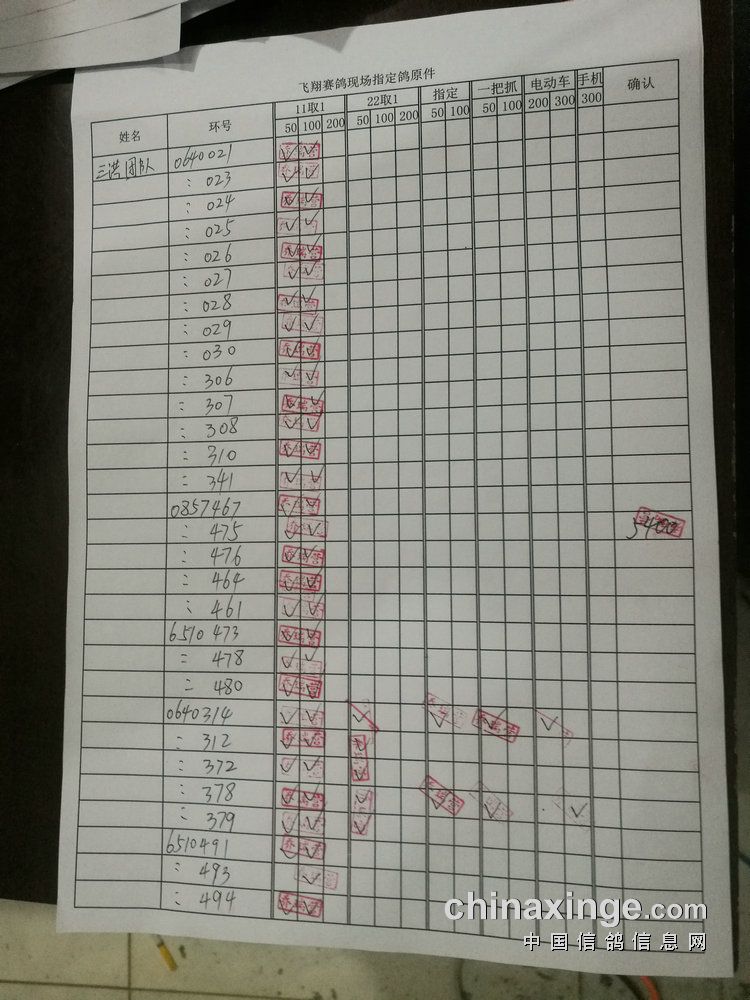 飞翔赛鸽现场指定鸽原件
姓名 环号 11取1 22取1 指定 一把抓 电动车 手机 确认
50 100 200 50 100 200 50 100 50 100 200 300 300
三洪团队 0640021 √ √
:: 023 √ √
:: 024 √ √
:: 025 √ √
:: 026 √ √
:: 027 √ √
:: 028 √ √
:: 029 √ √
:: 030 √ √
:: 306 √ √
:: 307 √ √
:: 308 √ √
:: 310 √ √
:: 341 √ √
0857467 √ √
:: 475 √ √ 5400
:: 476 √ √
:: 464 √ √
:: 461 √ √
6510473 √ √
:: 478 √ √
:: 480 √ √
0640314 √ √ √ √ √ √
:: 312 √ √ √
:: 372 √ √ √
:: 378 √ √ √ √ √ √
:: 379 √ √ √
6510491 √ √
:: 493 √
:: 494 √ √
chinaxinge.com
中国信鸽信息网